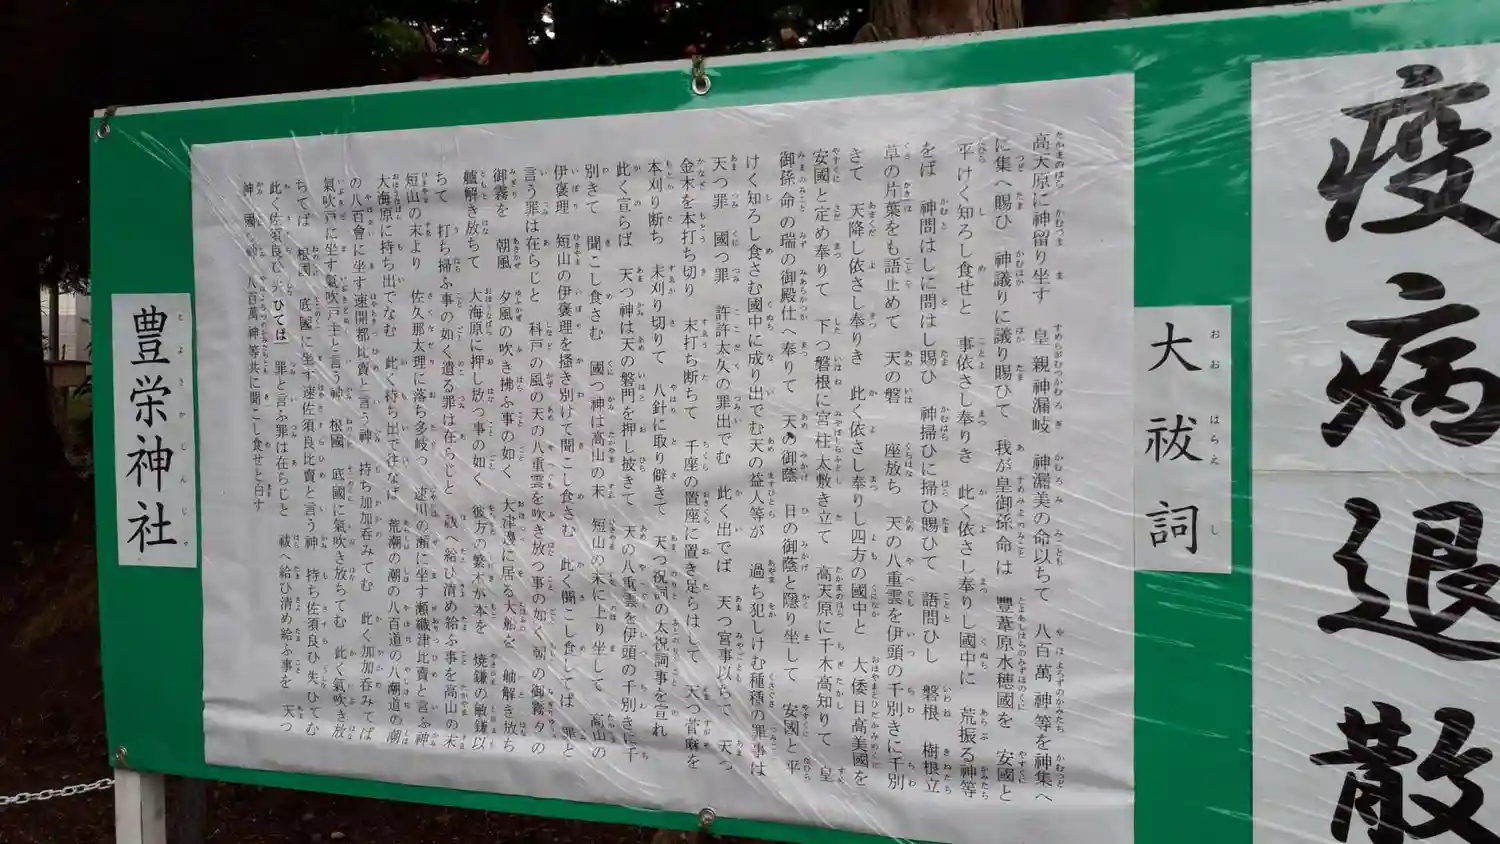 疫病退散
大祓詞
高天原に神留り坐す 皇親神漏岐 神漏美の命以ちて 八百萬神等を神集へ
に集へ賜ひ 神議りに議り賜ひて 我が皇御孫命は 豐葦原水穂國を 安國と
平けく知ろし食せと 事依さし奉りき 此く依さし奉りし國中に 荒振る神等
をば 神問はしに問はし賜ひ 神掃ひに掃ひ賜ひて 語問ひし 磐根 樹根立
草の片葉をも語止めて 天の磐座放ち 天の八重雲を伊頭の千別きに千別
きて 天降し依さし奉りき 此く依さし奉りし四方の國中と 大倭日高美國を
安國と定め奉りて 下つ磐根に宮柱太敷き立て 高天原に千木高知りて 皇
御孫命の瑞の御殿仕へ奉りて 天の御蔭 日の御蔭と隱り坐して 安國と平
けく知ろし食さむ國中に成り出でむ天の益人等が 過ち犯しけむ種種の罪事は
天つ罪 國つ罪 許許太久の罪出でむ 此く出でば 天つ宮事以ちて 天つ
金木を本打ち切り 末打ち断ちて 千座の置座に置き足らはして 天つ菅麻を
本刈り断ち 末刈り切りて 八針に取り辟きて 天つ祝詞の太祝詞事を宣れ
此く宣らば 天つ神は天の磐門を押し披きて 天の八重雲を伊頭の千別きに千
別きて 聞こし食さむ 國つ神は高山の末 短山の末に上り坐して 高山の
伊褒理 短山の伊褒理を搔き別けて聞こし食さむ 此く聞こし食してば 罪と
言う罪は在らじと 科戸の風の天の八重雲を吹き放つ事の如く 朝の御霧 夕の
御霧を 朝風 夕風の吹き拂ふ事の如く 大津邊に居る大船を 舳解き放ち
艫解き放ちて 大海原に押し放つ事の如く 彼方の繁木が本を 焼鎌の敏鎌以
ちて 打ち掃ふ事の如く 遺る罪は在らじと 祓へ給ひ清め給ふ事を 高山の末
短山の末より 佐久那太理に落ち多岐つ 速川の瀬に坐す瀬織津比賣と言ふ神
大海原に持ち出でなむ 此く持ち出で往なば 荒潮の潮の八百道の八潮道の潮
の八百會に坐す速開都比賣と言う神 持ち加加呑みてむ 此く加加呑みてば
氣吹戸に坐す氣吹戸主と言う神 根國 底國に氣吹き放ちてむ 此く氣吹き放
ちてば 根國 底國に坐す速佐須良比賣と言う神 持ち佐須良ひ失ひてむ
此く佐須良ひ失ひてば 罪と言ふ罪は在らじと 祓へ給ひ清め給ふ事を 天つ
神 國つ神 八百萬神等共に聞こし食せと白す
豊栄神社